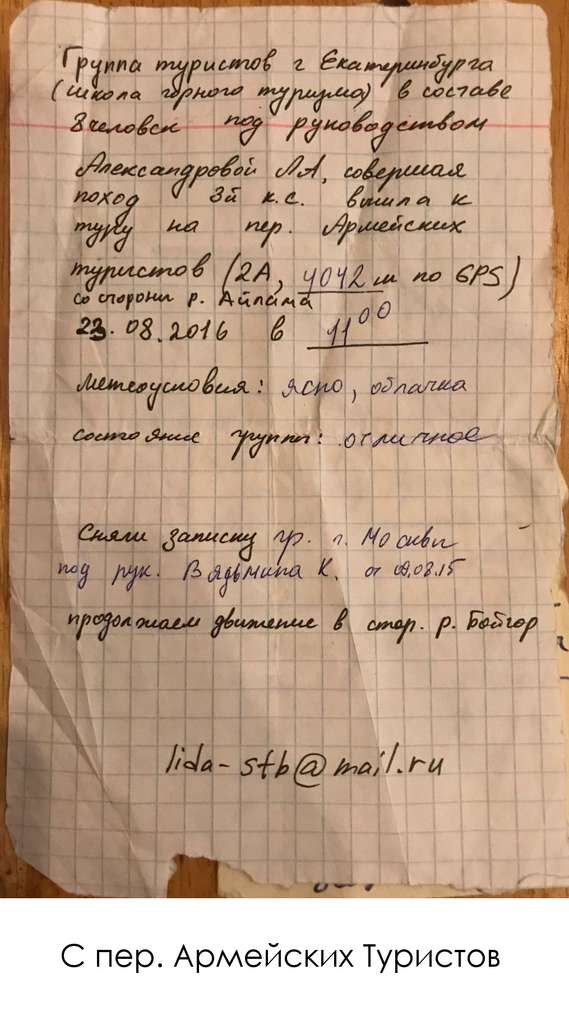 Группа туристов г Екатеринбурга
(школа горного туризма) в составе
8 человек под руководством
Александровой ЛА, совершая
поход 3й к.с. вышла к
туру на пер. Армейских
туристов (2А, 4042 м по GPS)
со стороны р. Айлама
23.08.2016 в 11 00
Метеоусловия: ясно, облачка
состояние группы: отличное
Сняли записку гр. г. Москвы
под рук. Вядьмина К. от 09.08.15
продолжаем движение в стор. р. Бойгор
lida-stb@mail.ru
С пер. Армейских Туристов